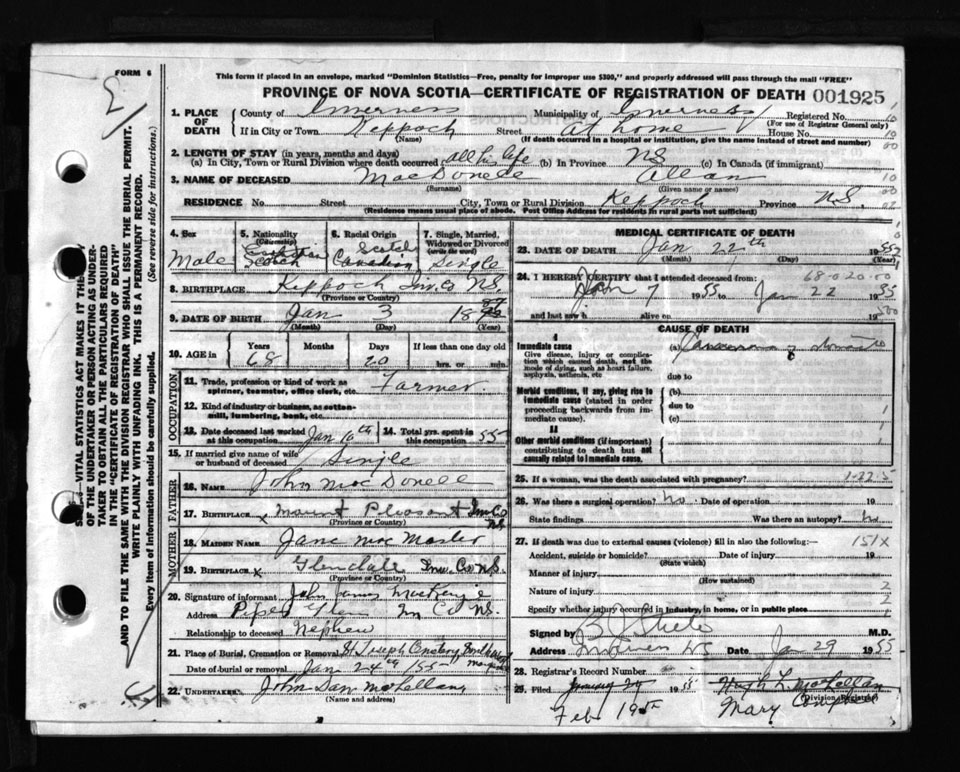 FORM 6
This form if placed in an envelope, marked "Dominion Statistics—Free, penalty for improper use $300," and properly addressed will pass through the mail "FREE"
PROVINCE OF NOVA SCOTIA—CERTIFICATE OF REGISTRATION OF DEATH 001925
1. PLACE OF DEATH County of Inverness Municipality of Inverness Registered No.
(For use of Registrar General only)
If in City or Town Keppoch Street At home House No.
(Name) (If death occurred in a hospital or institution, give the name instead of street and number)
2. LENGTH OF STAY (in years, months and days)
(a) In City, Town or Rural Division where death occurred all his life (b) In Province NS (c) In Canada (if immigrant)
3. NAME OF DECEASED MacDonell Allan
(Surname) (Given name or names)
RESIDENCE No. Street City, Town or Rural Division Keppoch Province NS.
(Residence means usual place of abode. Post Office Address for residents in rural parts not sufficient)
4. Sex Male
5. Nationality (Citizenship) Scotch
6. Racial Origin Scotch Canadian
7. Single, Married, Widowed or Divorced (write the word) Single
8. BIRTHPLACE Keppoch Inv. Co NS.
(Province or Country)
9. DATE OF BIRTH Jan 3 18
(Month) (Day) (Year)
10. AGE in Years 68 Months Days 20 If less than one day old hrs. or min.
OCCUPATION
11. Trade, profession or kind of work as spinner, teamster, office clerk, etc. Farmer
12. Kind of industry or business, as cotton-mill, lumbering, bank, etc.
13. Date deceased last worked at this occupation Jan 10th 14. Total yrs. spent in this occupation 55
15. If married give name of wife or husband of deceased Single
FATHER
16. Name John MacDonell
17. Birthplace x Mount Pleasant Inv Co NS.
(Province or Country)
MOTHER
18. Maiden Name Jane MacMaster
19. Birthplace x Glendale Inv. Co NS.
(Province or Country)
20. Signature of informant John James MacKenzie
Address Pipers Glen In Co NS.
Relationship to deceased Nephew
21. Place of Burial, Cremation or Removal St Joseph Cmetery
Date of burial or removal Jan 24th 1955
22. Undertaker John Dan McLellan
(Name and address)
MEDICAL CERTIFICATE OF DEATH
23. DATE OF DEATH Jan 22th 1955
(Month) (Day) (Year)
68-0-20-00
24. I HEREBY CERTIFY that I attended deceased from:
Jan 7 1955 to Jan 22 1955
and last saw h alive on 19
CAUSE OF DEATH
I
Immediate cause
Give disease, injury or complication which caused death, not the mode of dying, such as heart failure, asphyxia, asthenia, etc.
(a) Carcinoma of stomach
due to
Morbid conditions, if any, giving rise to immediate cause (stated in order proceeding backwards from immediate cause).
(b)
due to
(c)
II
Other morbid conditions (if important) contributing to death but not causally related to immediate cause.
25. If a woman, was the death associated with pregnancy?
26. Was there a surgical operation? No. Date of operation 19
State findings Was there an autopsy? No
27. If death was due to external causes (violence) fill in also the following: 151X
Accident, suicide or homicide? Date of injury 19
(State which)
Manner of injury
(How sustained)
Nature of injury
Specify whether injury occurred in industry, in home, or in public place
Signed by M.D.
Address Inverness NS Date Jan 29 1955
28. Registrar's Record Number
29. Filed January 29 1955 Hugh L MacLellan
(Division Registrar)
Feb 1955 Mary
VITAL STATISTICS ACT MAKES IT THE DUTY
OF THE UNDERTAKER OR PERSON ACTING AS UNDERTAKER TO OBTAIN ALL THE PARTICULARS REQUIRED
IN THE "CERTIFICATE OF REGISTRATION OF DEATH"
AND TO FILE THE SAME WITH THE DIVISION REGISTRAR WHO SHALL ISSUE THE BURIAL PERMIT.
WRITE PLAINLY WITH UNFADING INK. THIS IS A PERMANENT RECORD.
Every item of information should be carefully supplied. (See reverse side for instructions.)